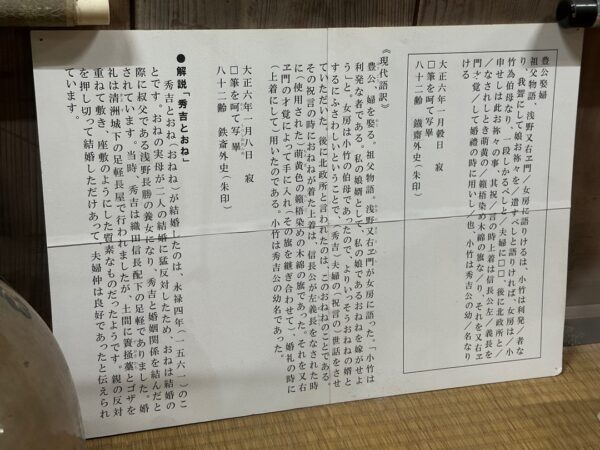 豊公娶婦
祖父物語、浅野又右ヱ門／女房に語りけるは、小竹は利発／者な
り、我聟にして娘お祢々を／遣すべしと語りければ、女房は／小
竹為伯母なり、一段しかるべしと／夫婦に□□後に北政所と／
申せしは此お祢々の事、其祝／言の時上着は信長公左／義長を
／なされしとき萌黄の／籏梧染め木綿の旗な／り、それを又右ヱ
門才覚／して婚禮の時に用いし／也、小竹は秀吉公の幼／名なり
ける
大正六年一月穀日　寂
□筆を呵て写畢
八十二齢　鐵斎外史（朱印）
《現代語訳》
豊公、婦を娶る。祖父物語。浅野又右ヱ門が女房に語った。「小竹は
利発な者である。私の娘婿として、私の娘であるおねねを嫁がせよ
う」と。女房は小竹の伯母であったので、よりいっそうおねねの婿と
するにふさわしいということで、（秀吉）夫婦の（祝言の）世話をさせ
ていただいた。後に北政所と言われたのは、このおねねのことである。
その祝言の時におねねが着た上着は、信長公が左義長をなされた時
に（使用された）萌黄色の籏梧染めの木綿の旗であった。それを又右
ヱ門の才覚によって手に入れ（その旗を継ぎ合わせて）、婚礼の時に
（上着にして）用いたのである。小竹は秀吉公の幼名であった。
大正六年一月八日　寂
□筆を呵て写畢
八十二齢　鉄斎外史（朱印）
●解説「秀吉とおね」
秀吉とおね（おねね）が結婚したのは、永禄四年（一五六一）のこ
とです。おねの実母が二人の結婚に猛反対したため、おねは結婚の
際に叔父である浅野長勝の養女になり、秀吉と婚姻関係を結んだと
されています。当時、秀吉は織田信長配下の足軽でありました。婚
礼は清洲城下の足軽長屋で行われましたが、土間に簀掻藁とゴザを
重ねて敷き、座敷のようにした質素なものだったようです。親の反対
を押し切って結婚しただけあって、夫婦仲は良好であったと伝えられ
ています。